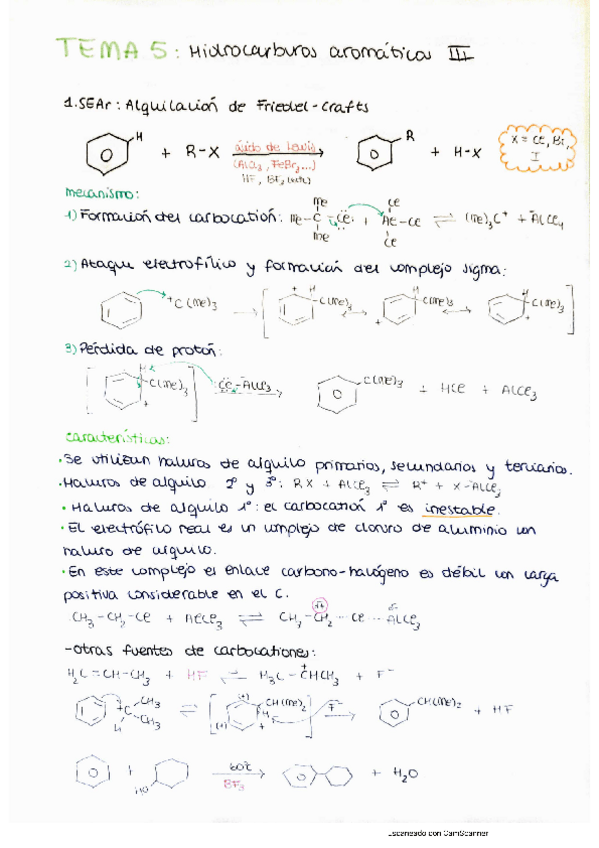 TEMA 5: Hidrocarburos aromáticos III
1. SEAr: Alquilación de Friedel-Crafts
H + R-X ácido de Lewis R + H-X X = Cl, Br,
(AlCl3, FeBr3...) I
HF, BF3
mecanismo:
1) Formación del carbocatión: Me-C-Cl + Al-Cl ⇌ (Me)3C+ + AlCl4
2) Ataque electrofílico y formación del complejo sigma:
+C(Me)3 C(Me)3 ↔ C(Me)3 ↔ C(Me)3
3) Pérdida de protón:
C(Me)3 Cl-AlCl3 C(Me)3 + HCl + AlCl3
características:
· Se utilizan haluros de alquilo primarios, secundarios y terciarios.
· Haluros de alquilo 2º y 3º: RX + AlCl3 ⇌ R+ + X-AlCl3
· Haluros de alquilo 1º: el carbocatión 1º es inestable.
· El electrófilo real es un complejo de cloruro de aluminio con
haluro de alquilo.
· En este complejo es enlace carbono-halógeno es débil con carga
positiva considerable en el C.
CH3-CH2-Cl + AlCl3 ⇌ CH3-CH2···Cl···AlCl3
-otras fuentes de carbocationes:
H2C=CH-CH3 + HF ⇌ H3C-CHCH3 + F-
CH3 CH3 H ⇌ CH(Me)2 H F- CH(Me)2 + HF
+ HO 60ºC BF3 + H2O
Escaneado con CamScanner